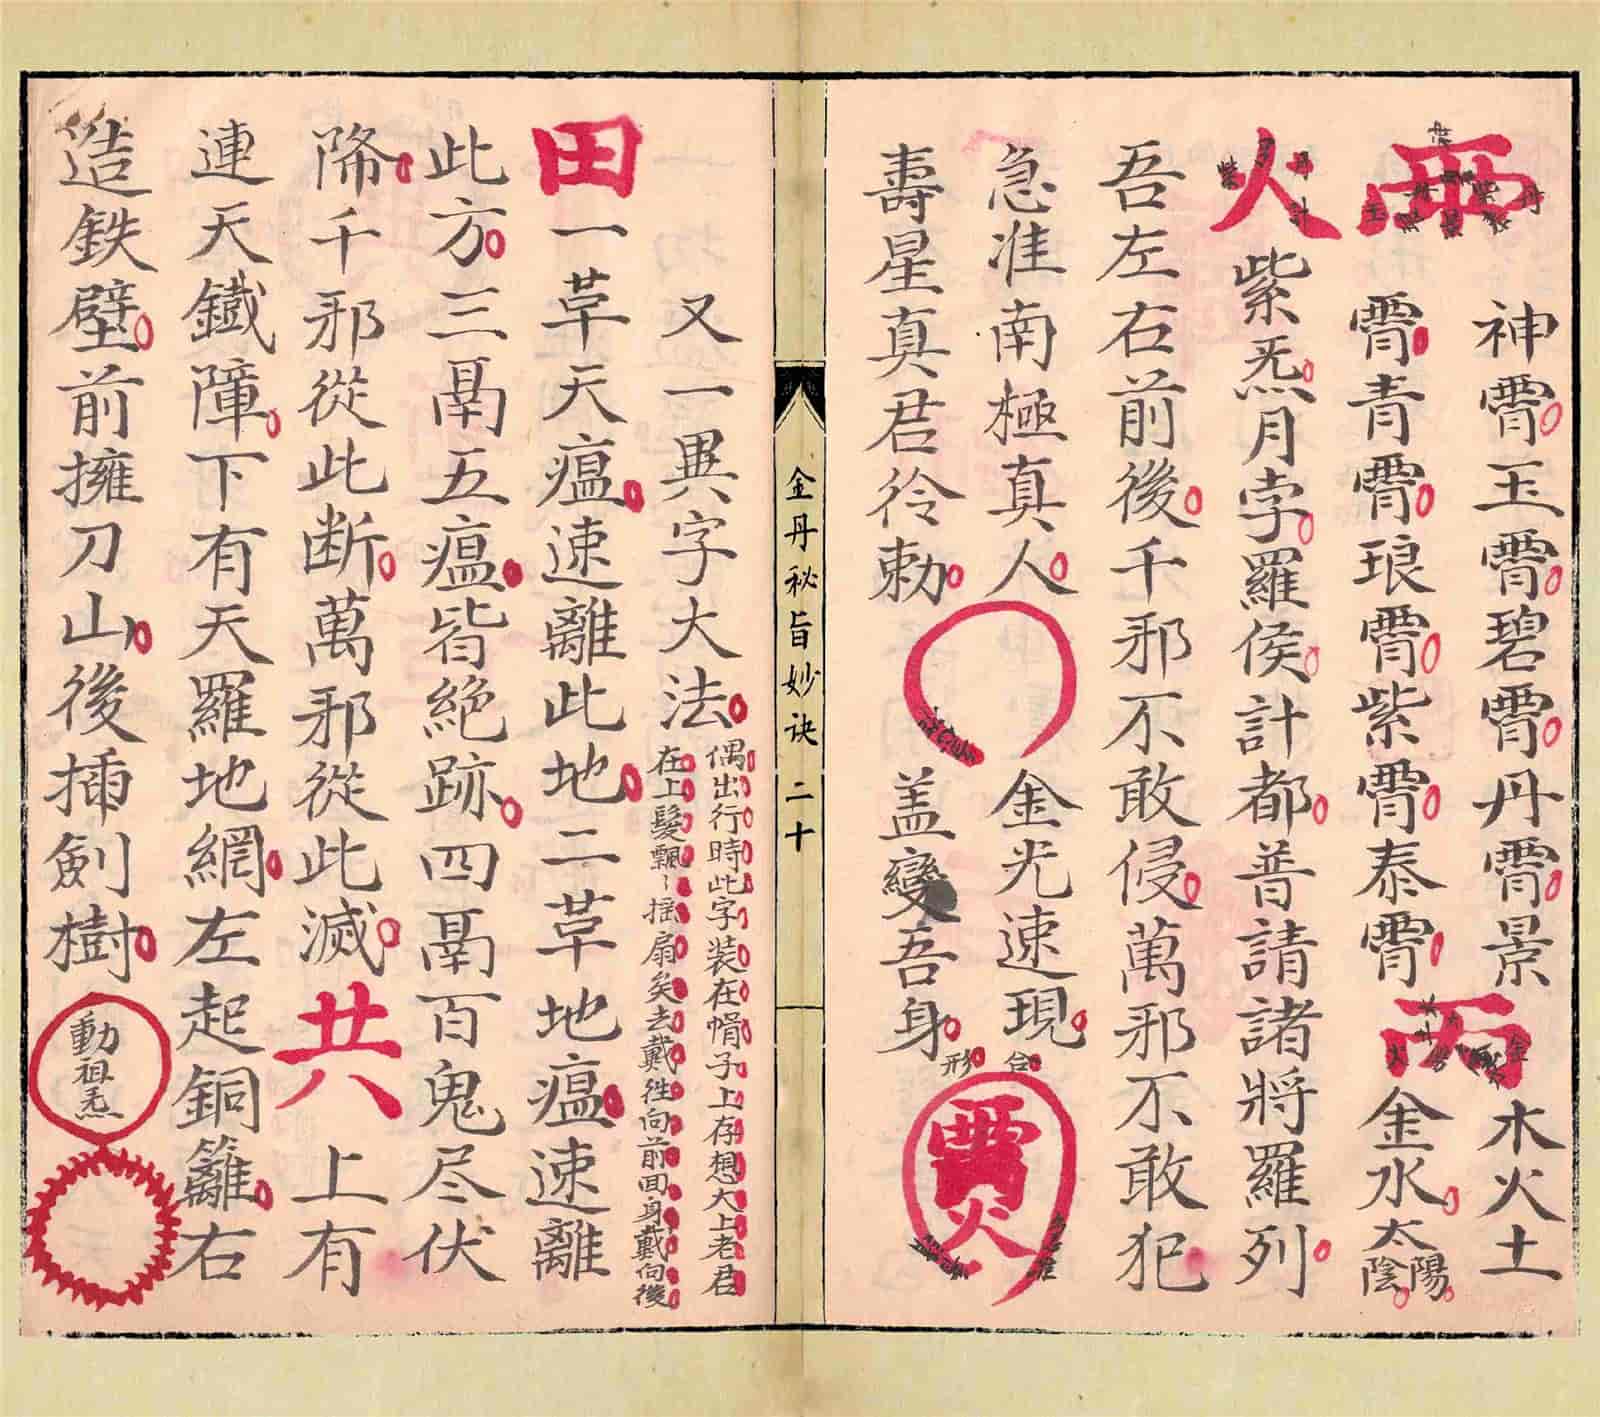 神霄玉霄碧霄丹霄景
霄青霄琅霄紫霄泰霄
木火土
金水太陰陽
火
紫炁月孛羅侯計都普請諸將羅列
吾左右前後千邪不敢侵萬邪不敢犯
急准南極真人
金光速現
合
壽星真君彳令勅
盖變吾身
形
霄火
金丹秘旨妙诀 二十
又一異字大法
偶出行時此字装在帽子上存想大上老君
在上髮飄飄摇扇矣去戴徃向前面身戴向後
田一草天瘟速離此地二草地瘟速離
此方三鬲五瘟皆絶跡四鬲百鬼尽伏
降千邪從此断萬邪從此滅共上有
連天鐵障下有天羅地網左起銅籬右
造鉄壁前擁刀山後插劍樹
動祖炁